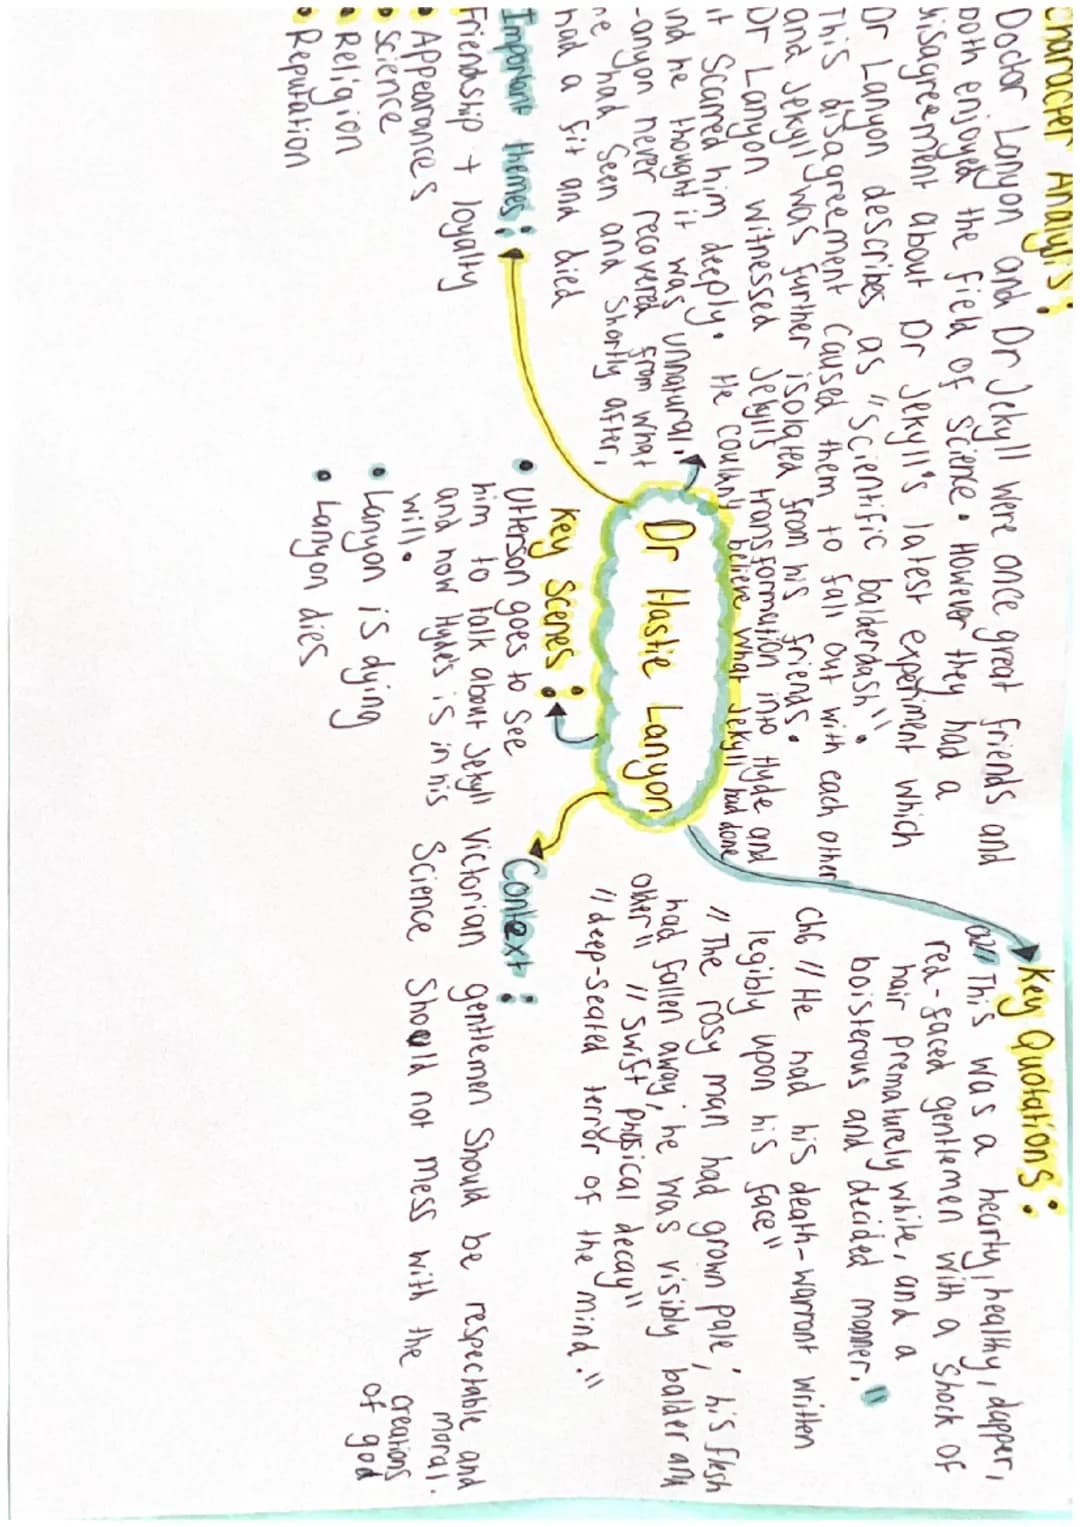 Character Analysis:
Doctor Lanyon and Dr Jekyll were once great friends and
both enjoyed the field of science. However they had a
disagreement about Dr Jekyll's latest experiment which
Dr Lanyon describes as "scientific balderdash".
This disagreement caused them to fall out with each other
and Jekyll was further isolated from his friends.
Dr Lanyon witnessed Jekylls transformation into Hyde and
it scarred him deeply. He couldn't believe what Jekyll had done
and he thought it was unnatural.
Lanyon never recovered from what
he had seen and shortly after,
had a fit and died
Key Quotations:
Ch2 "This was a hearty, healthy, dapper,
red-faced gentlemen with a shock of
hair prematurely white, and a
boisterous and decided manner."
Ch6 "He had his death-warrant written
legibly upon his face"
"The rosy man had grown pale; his flesh
had fallen away; he was visibly balder and
older" "swift physical decay"
"deep-seated terror of the mind."
Dr Hastie Lanyon
Important themes:
Friendship + loyalty
• Appearances
• Science
• Religion
• Reputation
Key Scenes:
• Utterson goes to see
him to talk about Jekyll
and how Hyde's is in his
will.
• Lanyon is dying
• Lanyon dies
Context:
Victorian gentlemen should be respectable and
moral.
Science should not mess with the creations
of god